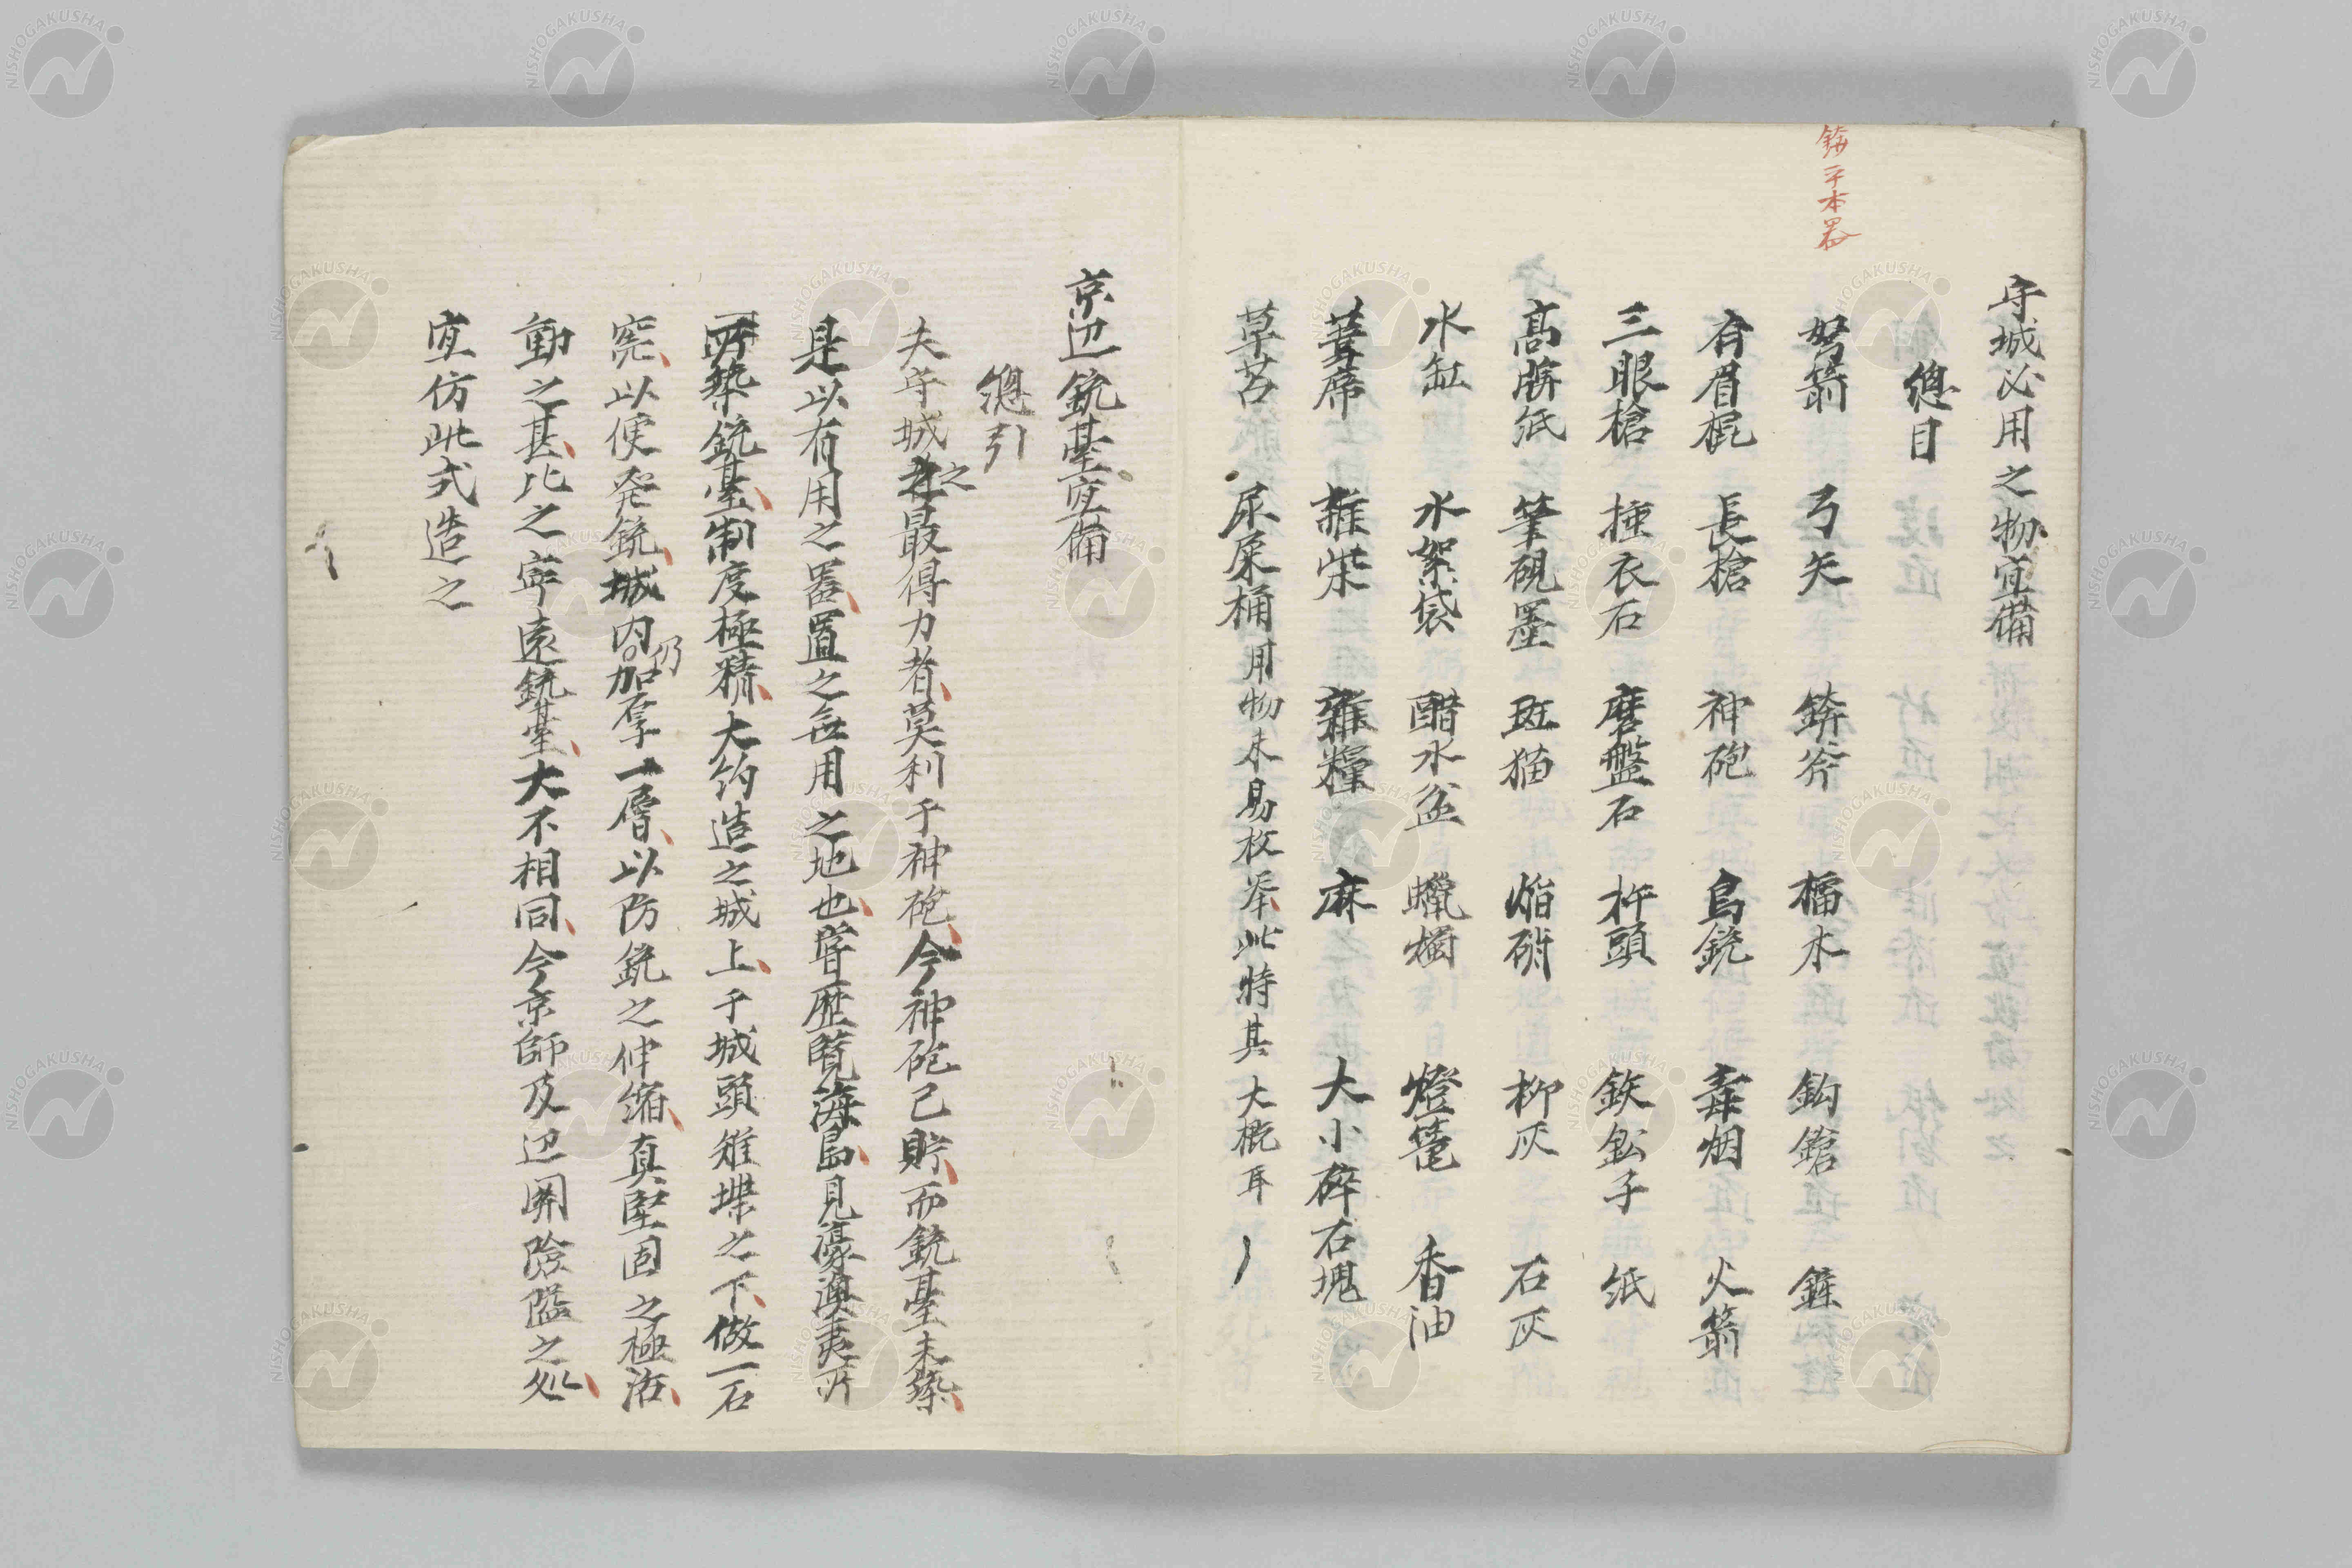 守城必用之物宜備
總目
弩箭 弓矢 錛斧 櫑木 鈎鎗 鏟
有眉棍 長槍 神砲 鳥銃 毒烟 火箭
三眼槍 捶衣石 磨盤石 杵頭 鉄鈆子 紙
高牓紙 筆硯墨 斑猫 焔硝 柳灰 石灰
水缸 水絮袋 醋水盆 蠟燭 燈篭 香油
蓑席 雜柴 雜糧 麻 大小碎石塊
草苫 尿屎桶 用物未易枚举此特其大概耳
京辺銃臺宜備
總引
夫守城之最得力者莫利于神砲今神砲已貯而銃臺未築
是以有用之器置之無用之地也嘗歴覽海島見濠澳夷所
所築銃臺制度極精大約造之城上于城頭雉堞之下做一石
窕以便発銃城内仍加厚一層以防銃之伸縮真堅固之極活
動之甚比之寧遠銃臺大不相同今京師及辺関險隘之処
宜仿此式造之
NISHOGAKUSHA